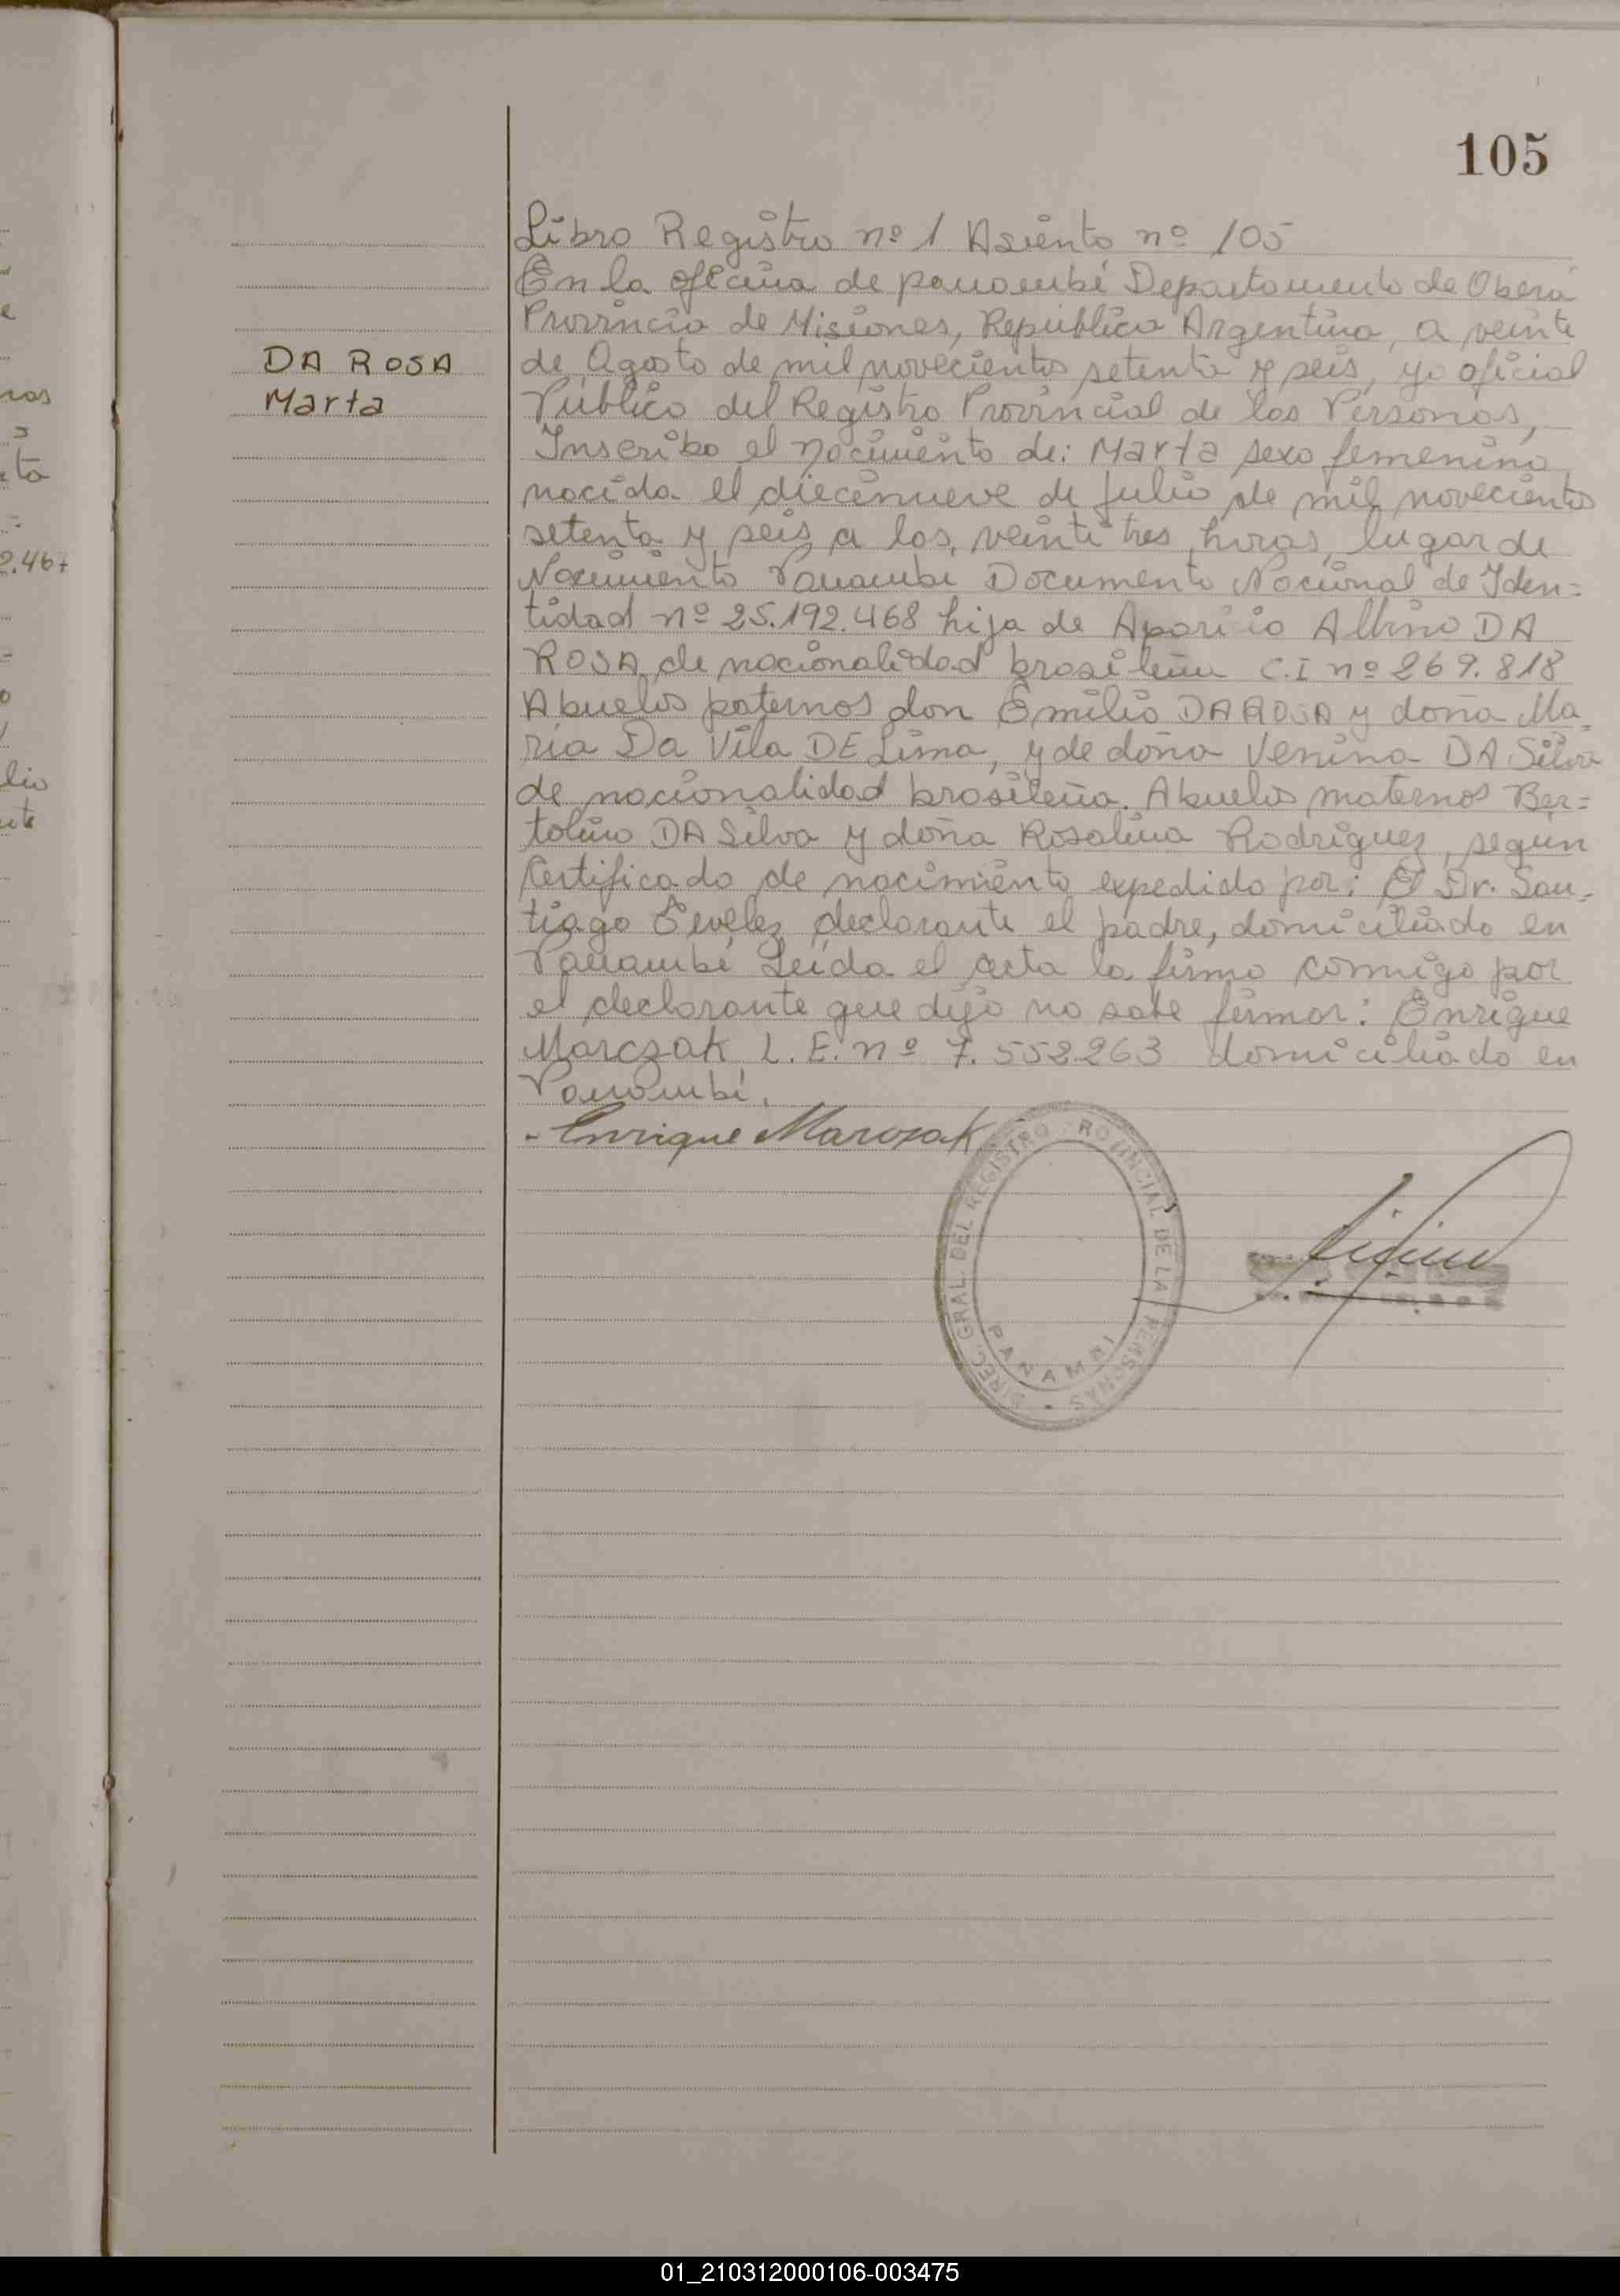 105
Libro Registro nº 1 Asiento nº 105
En la oficina de panambí Departamento de Oberá
Provincia de Misiones, República Argentina, a veinte
DA ROSA
de Agosto de mil novecientos setenta y seis, yo oficial
Marta
Público del Registro Provincial de las Personas,
Inscribo el nacimiento de: Marta sexo femenino
nacida el diecinueve de julio de mil novecientos
setenta y seis a las veinti tres horas, lugar de
Nacimiento Panambí Documento Nacional de Iden=
tidad nº 25.192.468 hija de Aparicio Albino DA
ROSA de nacionalidad brasileña C.I nº 269.818
Abuelos paternos don Emilio DA ROSA y doña Ma-
ria Da Vila DE Lima, y de doña Venina DA Silva
de nacionalidad brasileña. Abuelos maternos Ber=
tolino DA Silva y doña Rosalina Rodriguez, según
Certificado de nacimiento expedido por: El Dr. San-
tiago declarante el padre, domiciliado en
Panambí Leída el acta la firma conmigo por
el declarante que dijo no sabe firmar: Enrique
Marczak L.E. nº 7.552263 domiciliado en
Panambí.
- Enrique Marczak
DIREC. GRAL. DEL REGISTRO PROVINCIAL DE LAS PERSONAS
PANAMBI
nos
ta
2.467
lio
nte
01_210312000106-003475